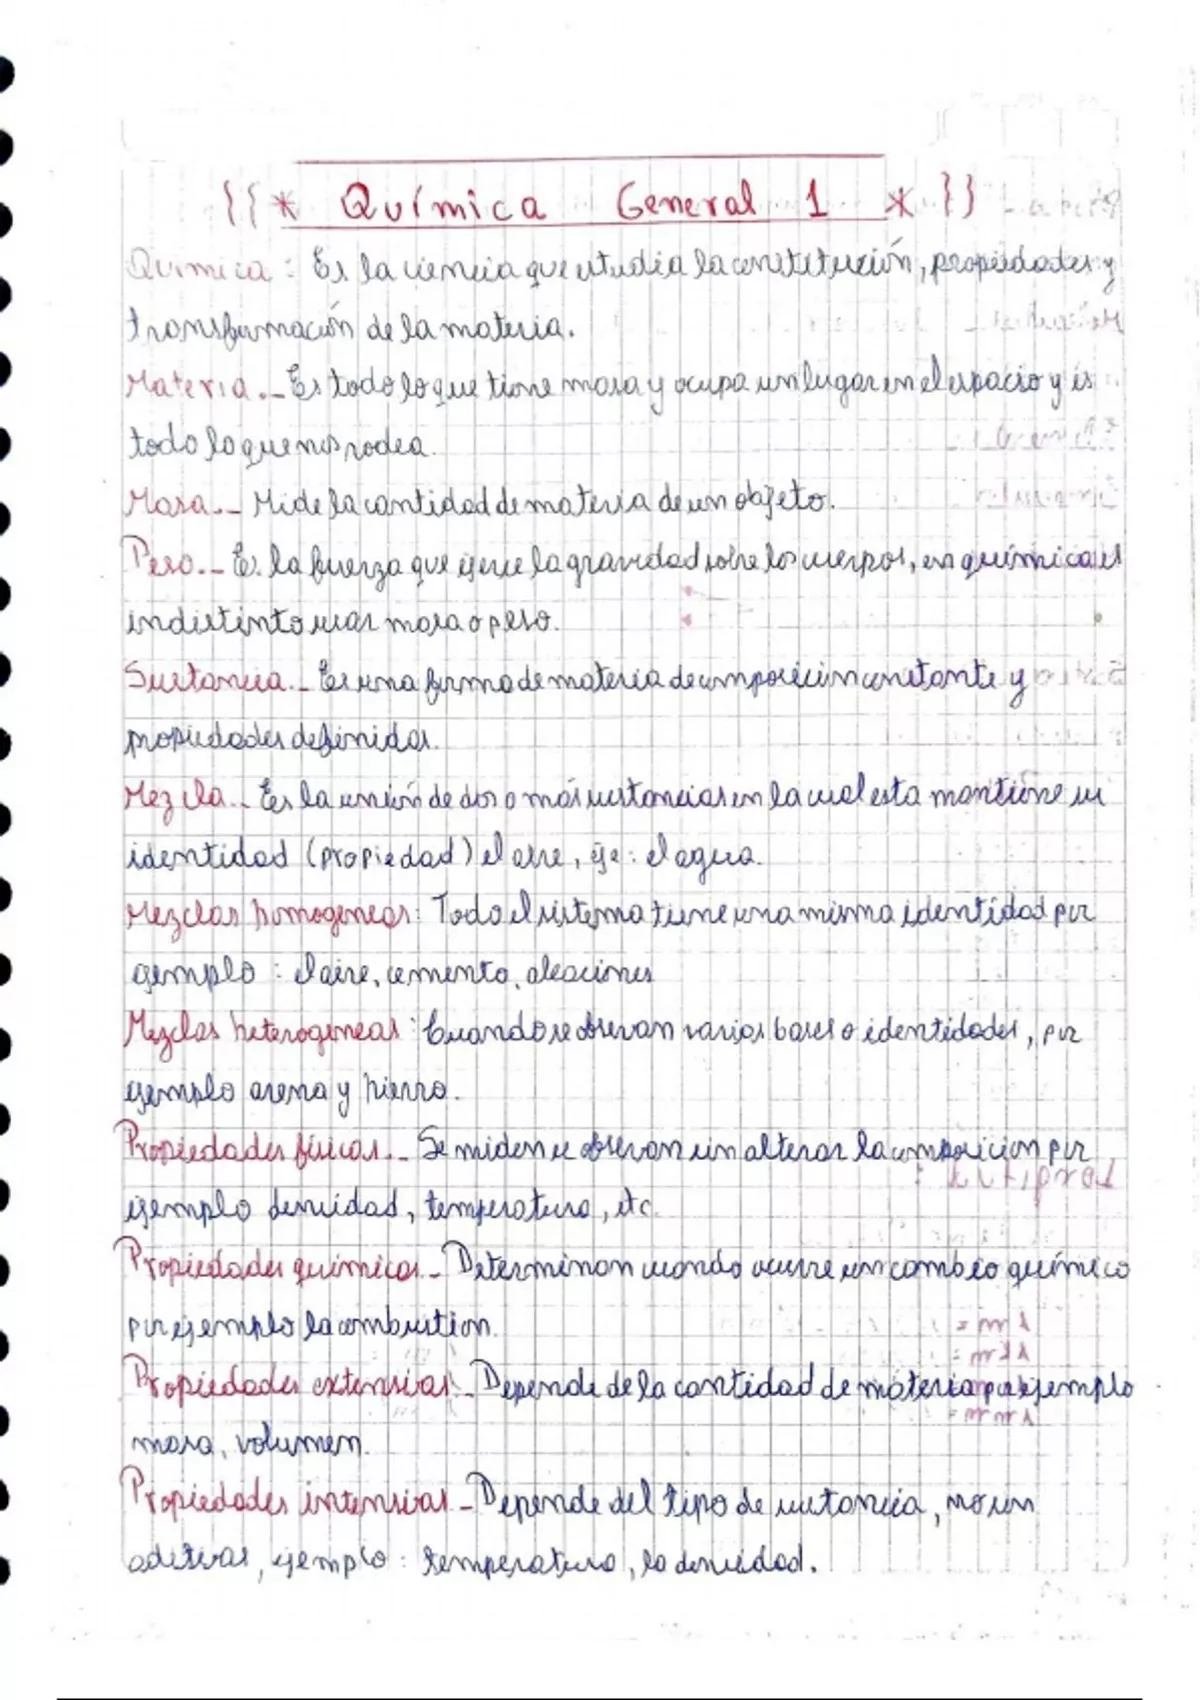 {{* Química General 1 *}}
Química : Es la ciencia que estudia la constitución, propiedades y
transformación de la materia.
Materia.- Es todo lo que tiene masa y ocupa un lugar en el espacio y es
todo lo que nos rodea.
Masa.- Mide la cantidad de materia de un objeto.
Peso.- Es la fuerza que ejerce la gravedad sobre los cuerpos, en química es
indistinto usar masa o peso.
Sustancia.- Es una forma de materia de composición constante y
propiedades definidas.
Mezcla.- Es la unión de dos o más sustancias en la cual esta mantiene su
identidad (propiedad) el aire, eje: el agua.
Mezclas homogeneas: Todo el sistema tiene una misma identidad por
ejemplo : el aire, cemento, aleaciones
Mezclas heterogeneas : Cuando se observan varias bases o identidades, por
ejemplo arena y hierro.
Propiedades físicas.- Se miden u observan sin alterar la composicion por
ejemplo densidad, temperatura, etc.
Propiedades químicas.- Determinan cuando ocurre un cambio químico
por ejemplo la combustion.
Propiedades extensivas.- Depende de la cantidad de materia por ejemplo
masa, volumen.
Propiedades intensivas - Depende del tipo de sustancia, no son
aditivas, ejemplo : temperatura, la densidad.